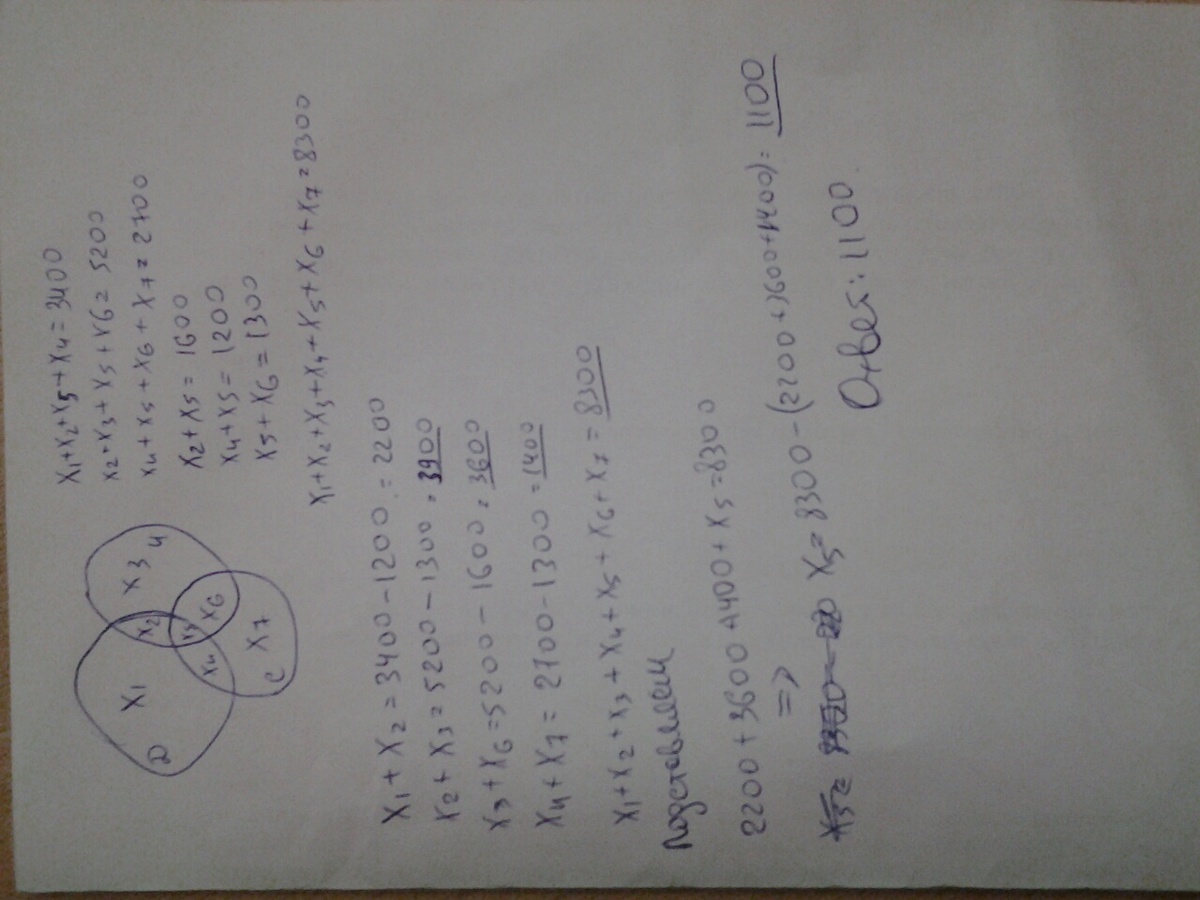 X1+X2+X5+X4=3400
X2+X3+X5+X6=5200
X4+X5+X6+X7=2700
X2+X5=1600
X4+X5=1200
X5+X6=1300
X1+X2+X3+X4+X5+X6+X7=8300
D X1 X2 X3 Ч
X4 X5 X6
C X7
X1+X2=3400-1200=2200
X2+X3=5200-1300=3900
X3+X6=5200-1600=3600
X4+X7=2700-1300=1400
X1+X2+X3+X4+X5+X6+X7=8300
Подставляем
2200+3600+1400+X5=8300
=>
X5=8300-(2200+3600+1400)=1100
Ответ: 1100.